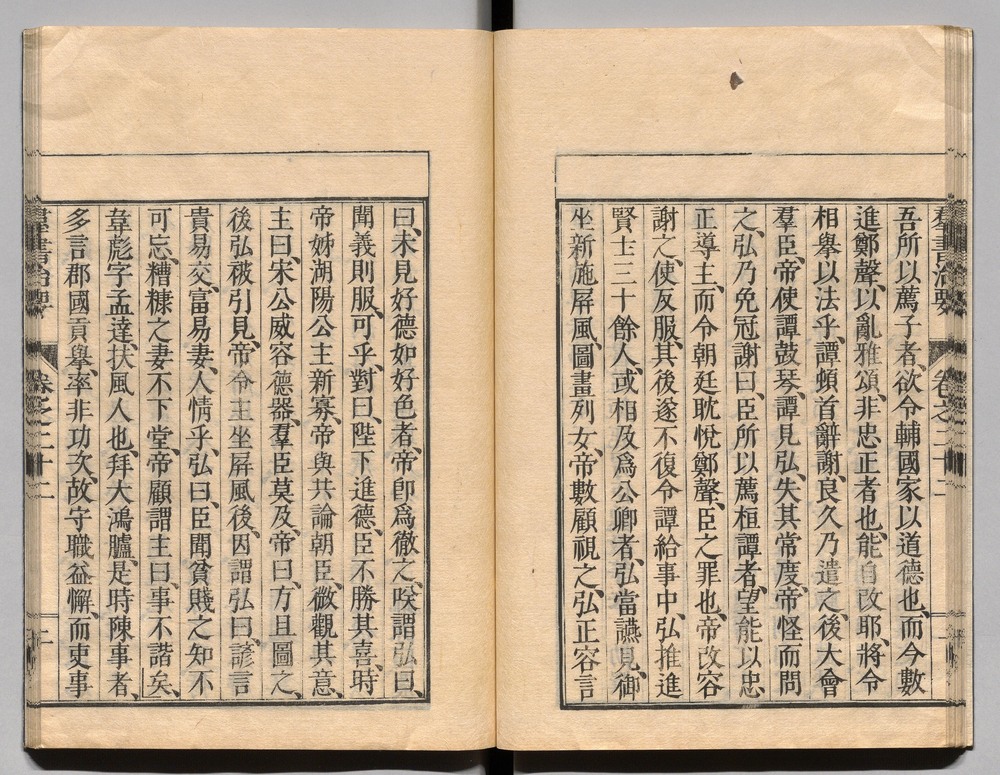 羣書治要 卷之二十二
吾所以薦子者、欲令輔國家以道德也、而今數
進鄭聲、以亂雅頌、非忠正者也、能自改耶、將令
相舉以法乎、譚頓首辭謝、良久乃遣之、後大會
羣臣、帝使譚鼓琴、譚見弘、失其常度、帝怪而問
之、弘乃免冠謝曰、臣所以薦桓譚者、望能以忠
正導主、而令朝廷耽悅鄭聲、臣之罪也、帝改容
謝之、使反服、其後遂不復令譚給事中、弘推進
賢士三十餘人、或相及爲公卿者、弘當讌見、御
坐新施屏風、圖畫列女、帝數顧視之、弘正容言
曰、未見好德如好色者、帝卽爲徹之、笑謂弘曰、
聞義則服、可乎、對曰、陛下進德、臣不勝其喜、時
帝姊湖陽公主新寡、帝與共論朝臣、微觀其意、
主曰、宋公威容德器、羣臣莫及、帝曰、方且圖之、
後弘被引見、帝令主坐屏風後、因謂弘曰、諺言
貴易交、富易妻、人情乎、弘曰、臣聞貧賤之知不
可忘、糟糠之妻不下堂、帝顧謂主曰、事不諧矣、
韋彪字孟達、扶風人也、拜大鴻臚、是時陳事者、
多言郡國貢舉、率非功次、故守職益懈、而吏事
羣書治要 卷之二十二 二